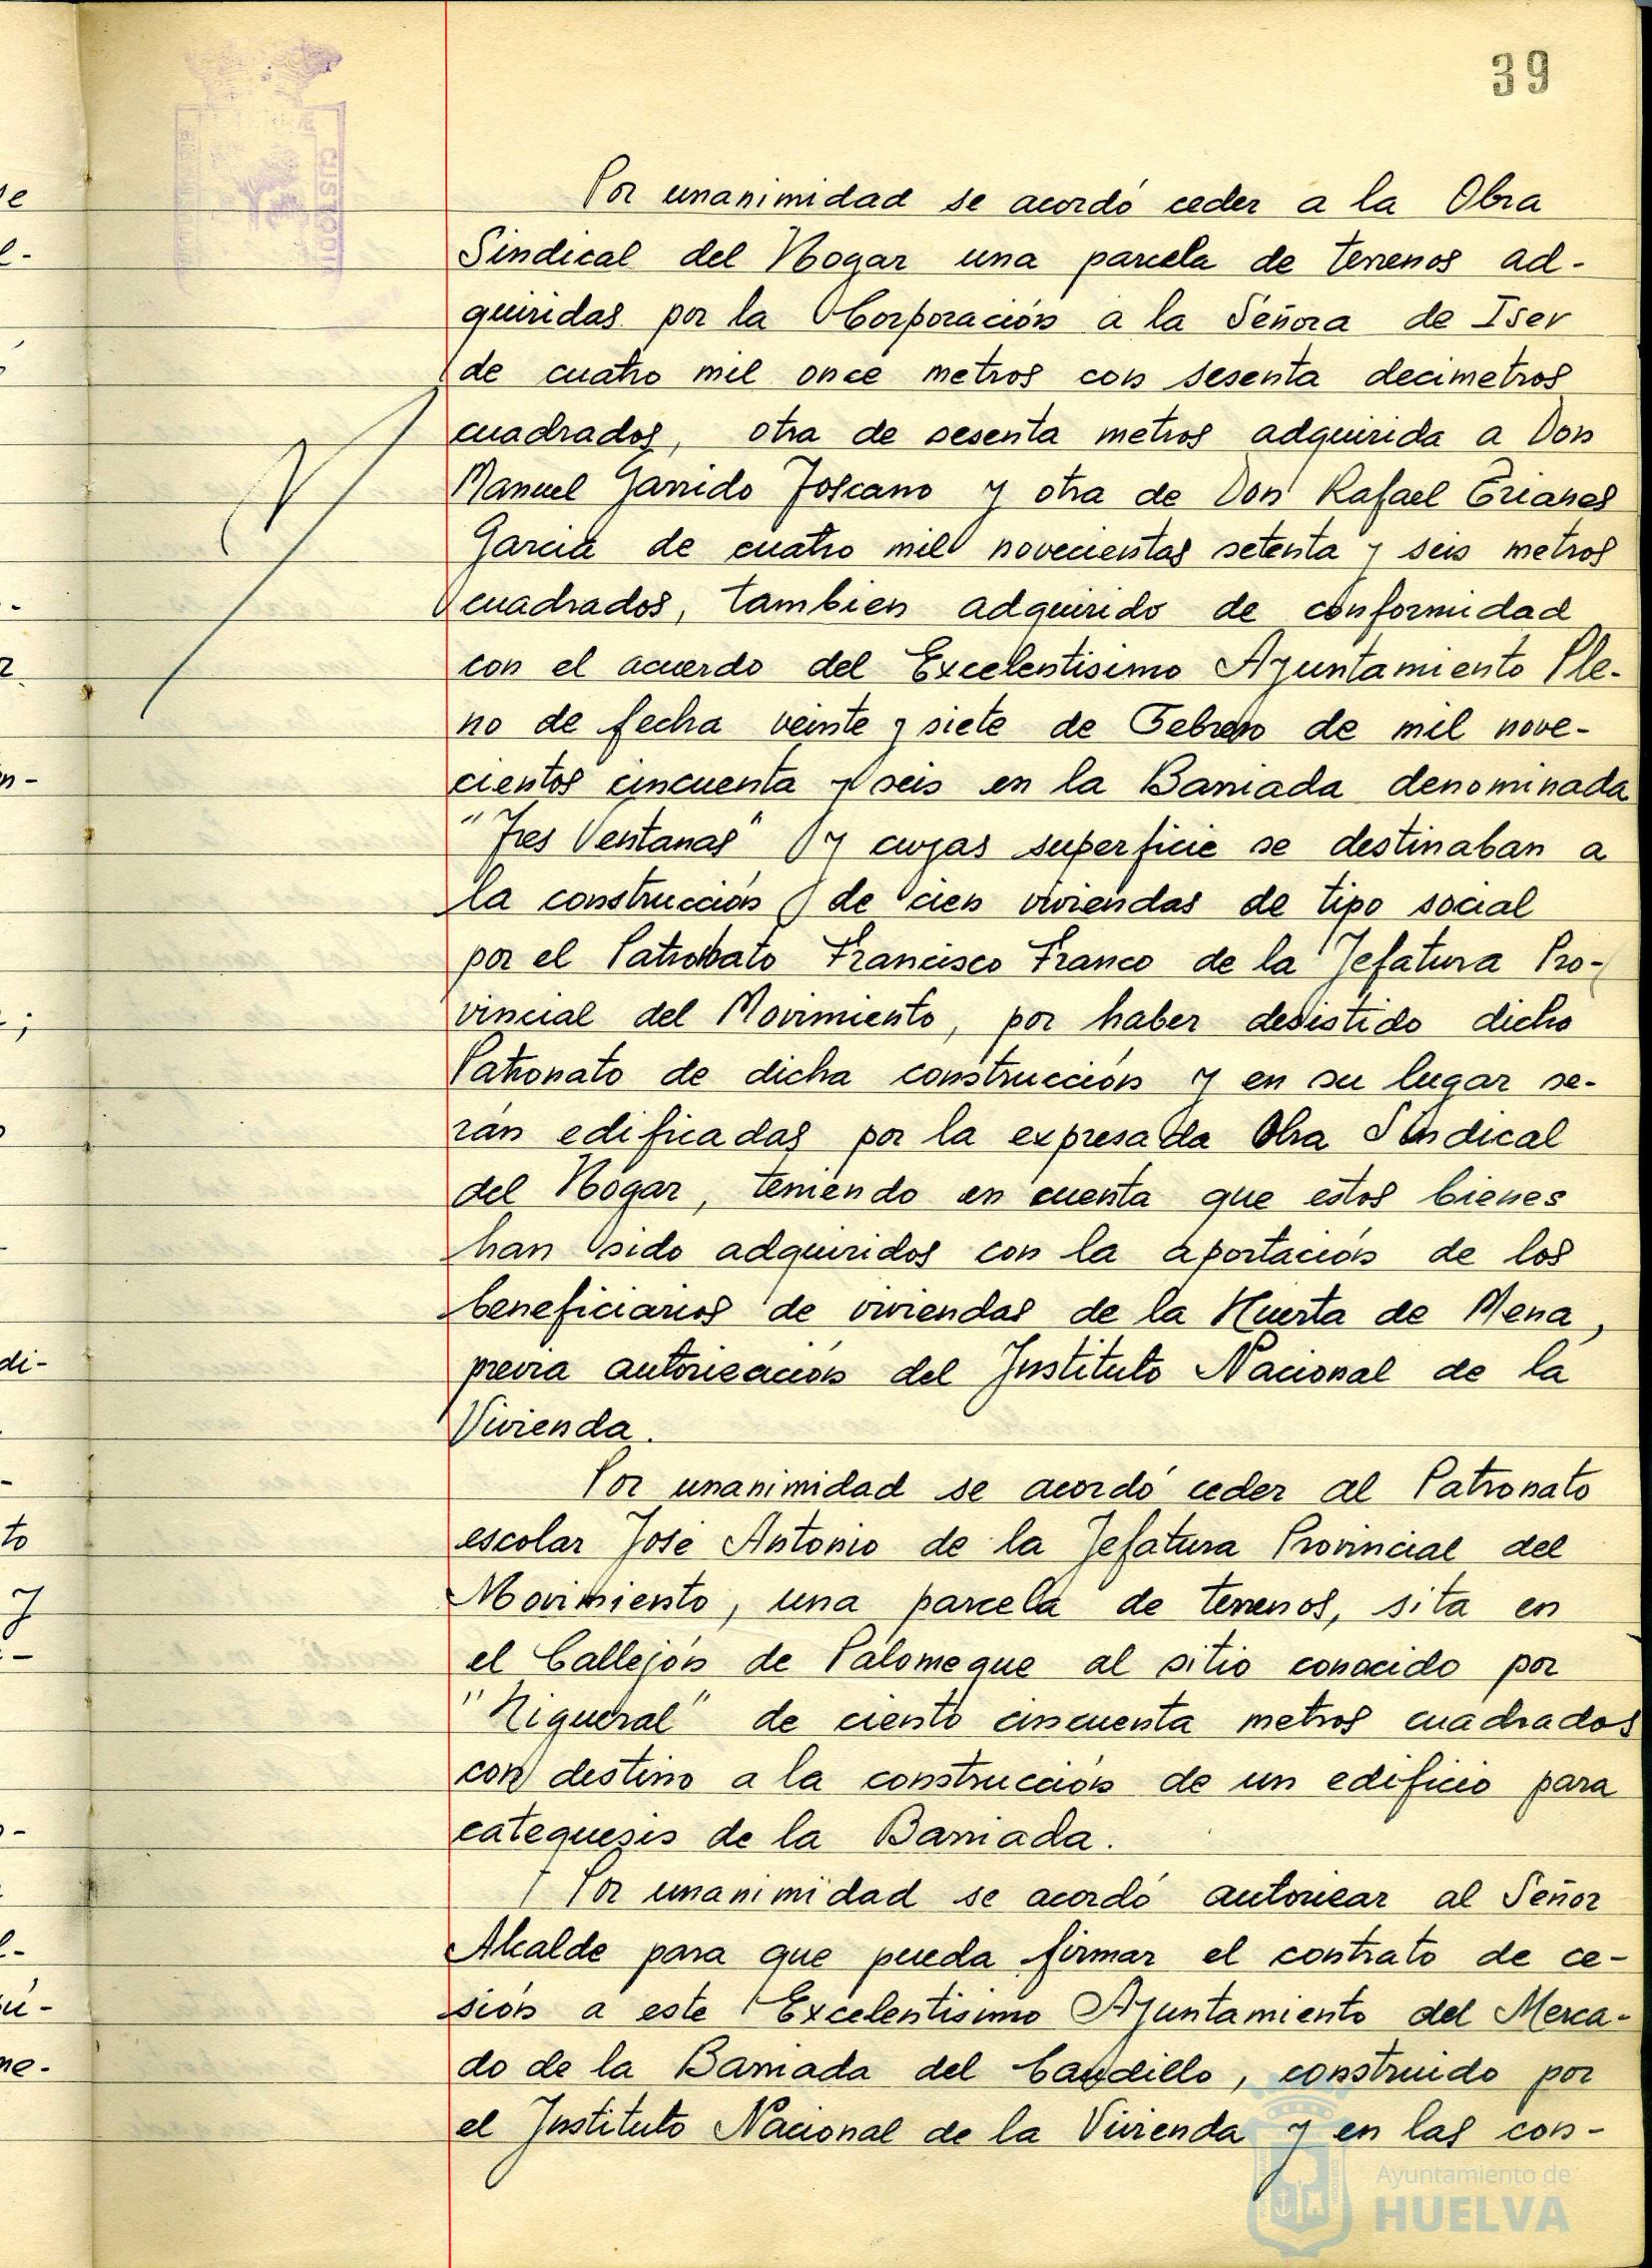 39
Por unanimidad se acordó ceder a la Obra
Sindical del Hogar una parcela de terrenos ad-
quiridas por la Corporación a la Señora de Iser
de cuatro mil once metros con sesenta decimetros
cuadrados, otra de sesenta metros adquirida a Don
Manuel Garrido Toscano y otra de Don Rafael Erianes
Garcia de cuatro mil novecientas setenta y seis metros
cuadrados, tambien adquirido de conformidad
con el acuerdo del Excelentisimo Ayuntamiento Ple-
no de fecha veinte y siete de Febrero de mil nove-
cientos cincuenta y seis en la Barriada denominada
"Tres Ventanas" y cuyas superficie se destinaban a
la construcción de cien viviendas de tipo social
por el Patronato Francisco Franco de la Jefatura Pro-
vincial del Movimiento, por haber desistido dicho
Patronato de dicha construcción y en su lugar se-
rán edificadas por la expresada Obra Sindical
del Hogar, teniendo en cuenta que estos bienes
han sido adquiridos con la aportación de los
beneficiarios de viviendas de la Huerta de Mena,
previa autorización del Instituto Nacional de la
Vivienda.
Por unanimidad se acordó ceder al Patronato
escolar José Antonio de la Jefatura Provincial del
Movimiento, una parcela de terrenos, sita en
el Callejón de Palomeque al sitio conocido por
"Higueral" de ciento cincuenta metros cuadrados
con destino a la construcción de un edificio para
catequesis de la Barriada.
Por unanimidad se acordó autorizar al Señor
Alcalde para que pueda firmar el contrato de ce-
sión a este Excelentisimo Ayuntamiento del Merca-
do de la Barriada del Caudillo, construido por
el Instituto Nacional de la Vivienda y en las con-
Ayuntamiento de
HUELVA